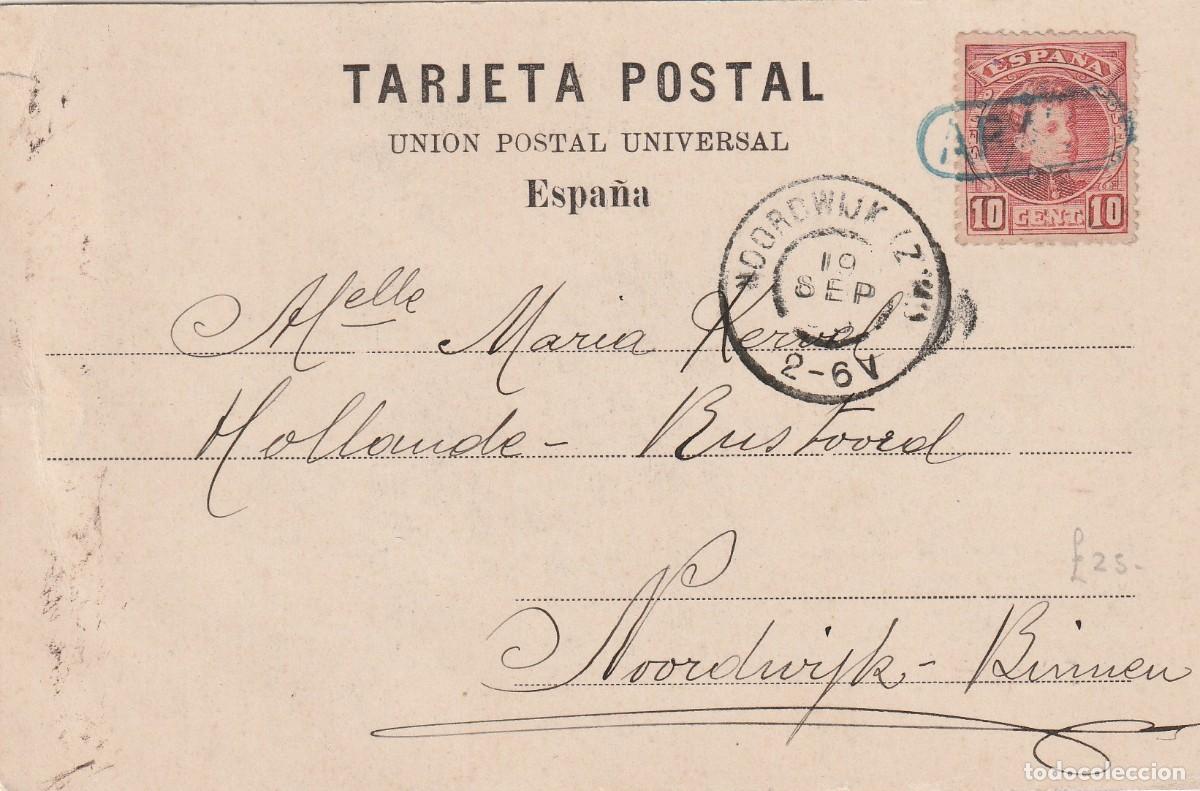 TARJETA POSTAL
UNION POSTAL UNIVERSAL
España
ESPAÑA
10 CENT. 10
NOORDWIJK (Z.H.)
19
SEP
2-6V
Melle Maria
Hollande- Rustoord
£25.-
Noordwijk-Binnen
todocoleccion